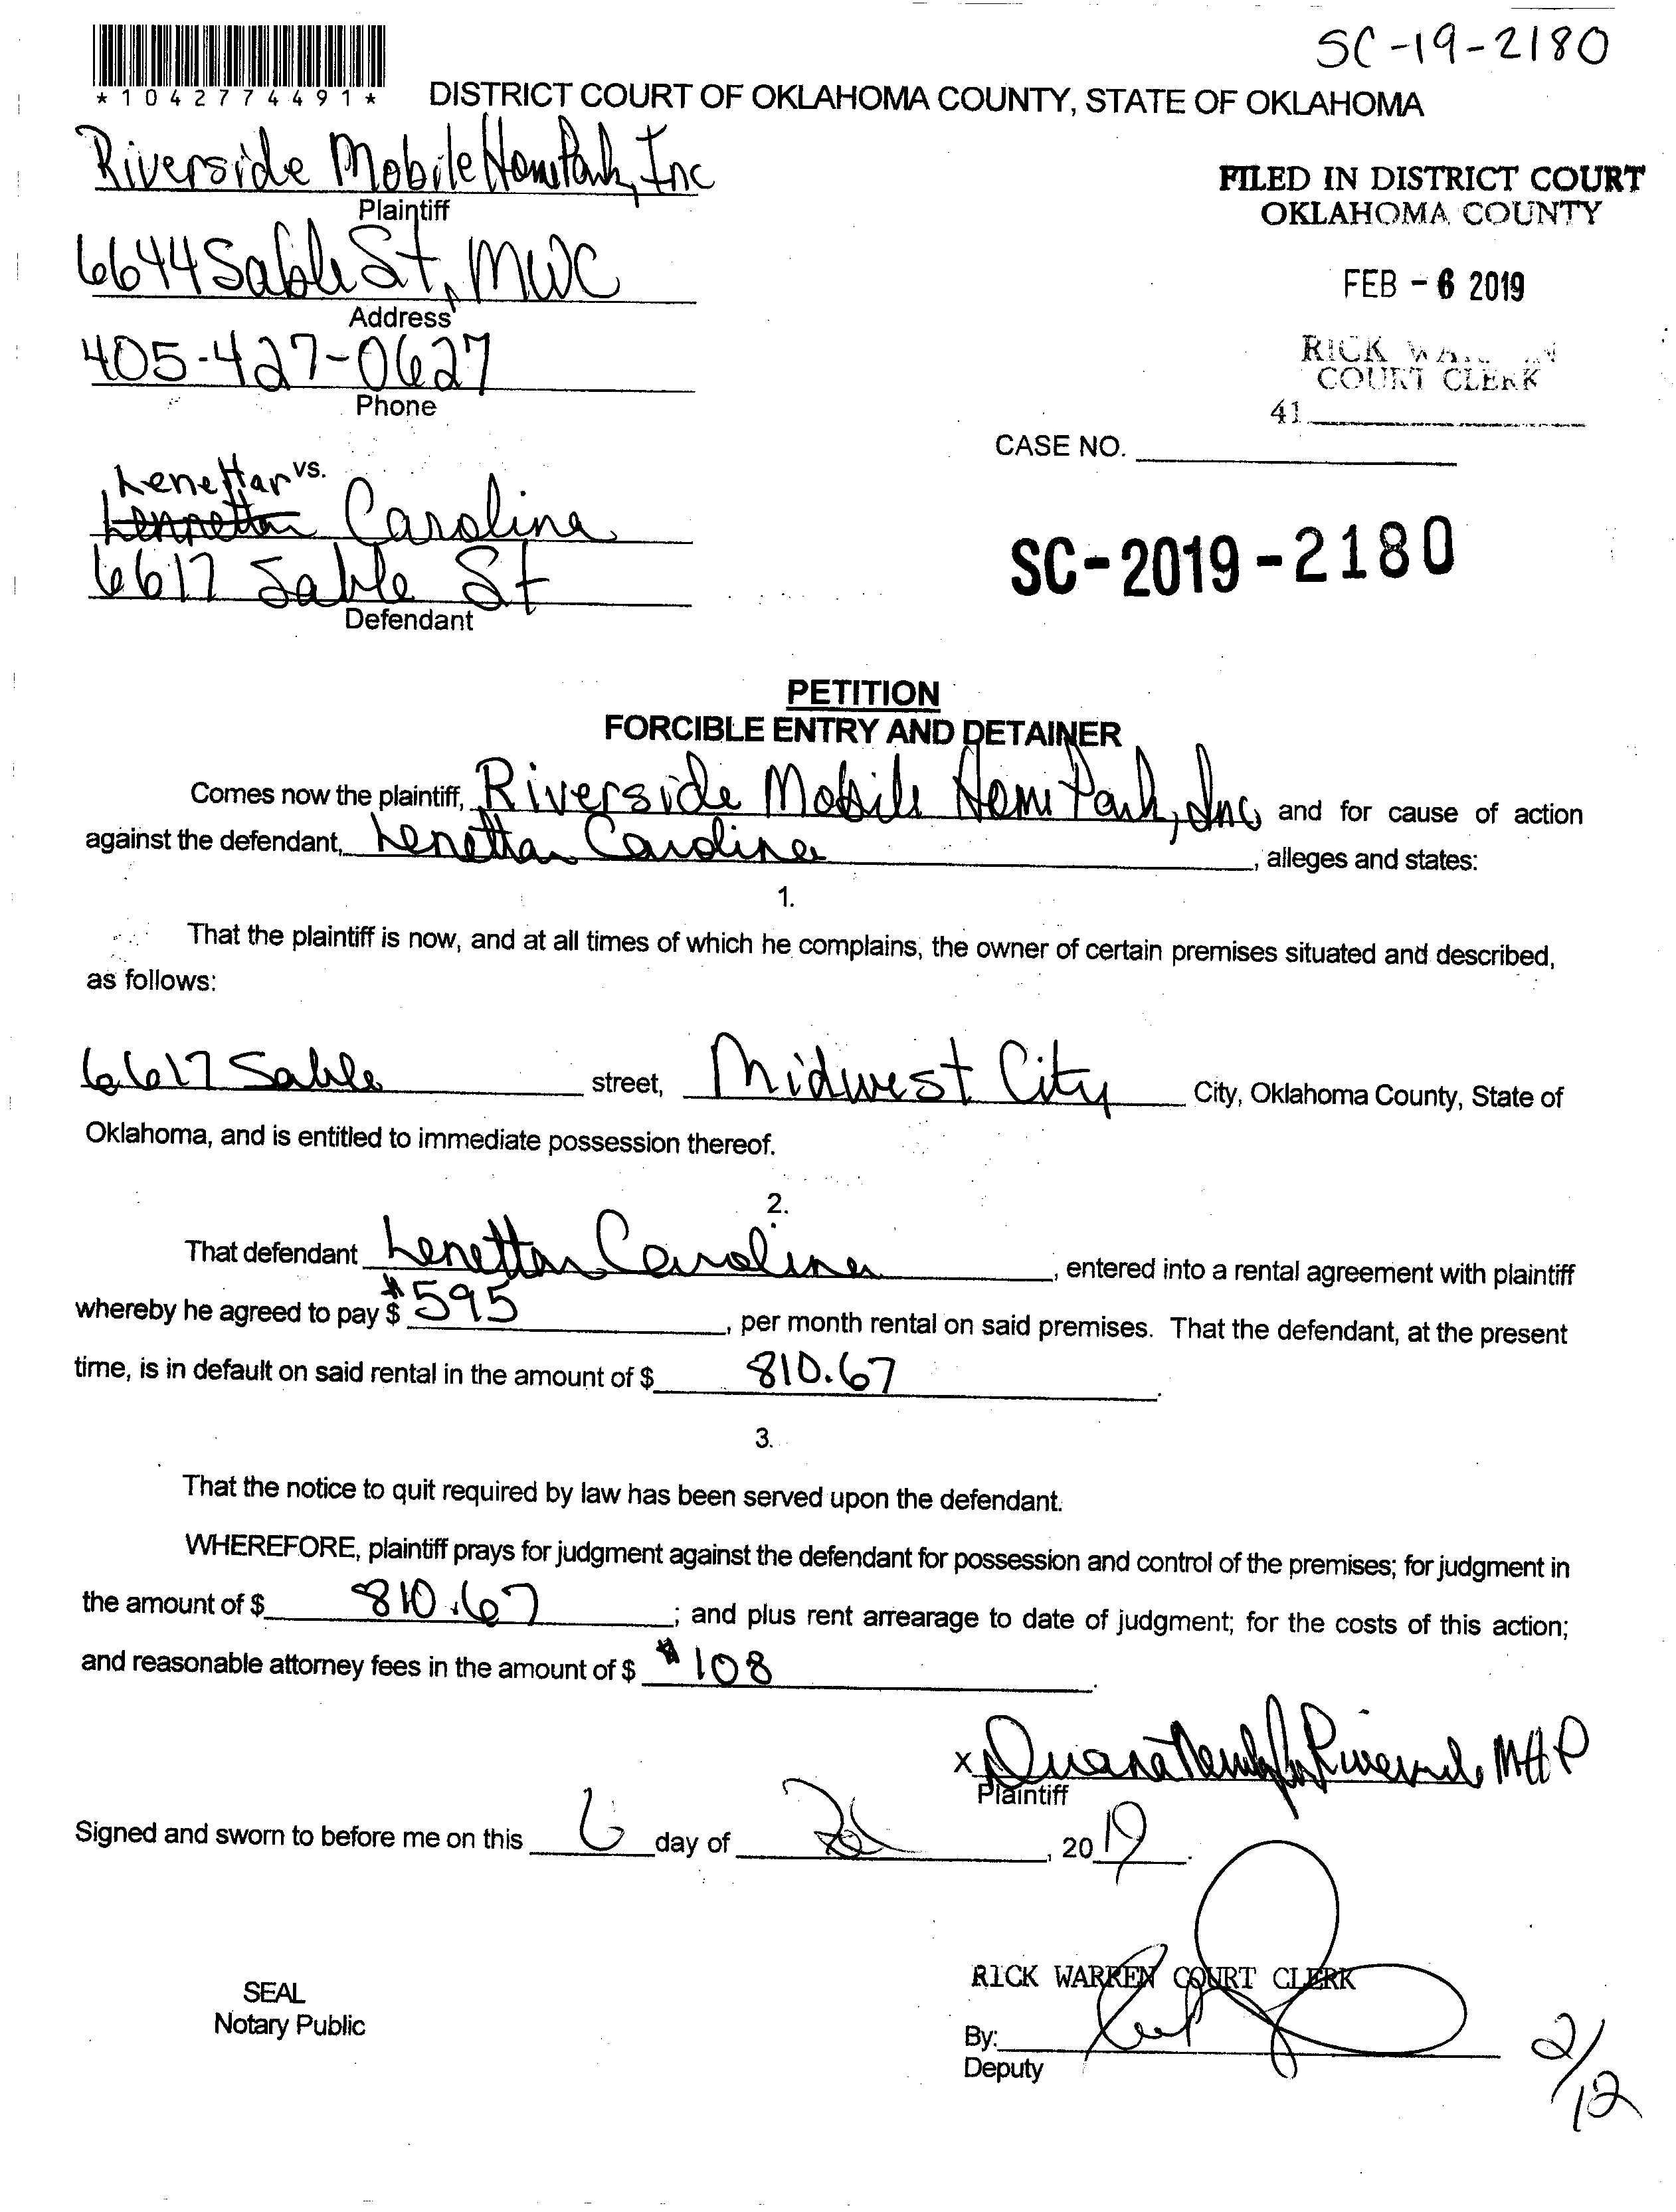 SC-19-2180
*1042774491*
DISTRICT COURT OF OKLAHOMA COUNTY, STATE OF OKLAHOMA
Riverside Mobile Home Park, Inc
Plaintiff
FILED IN DISTRICT COURT
OKLAHOMA COUNTY
6644 Sable St, MWC
Address
FEB - 6 2019
405-427-0627
Phone
RICK
COURT CLERK
41
CASE NO.
vs.
Lenettar
Carolina
6617 Sable St
Defendant
SC-2019-2180
PETITION
FORCIBLE ENTRY AND DETAINER
Comes now the plaintiff, Riverside Mobile Home Park, Inc and for cause of action
against the defendant, Lenetta Carolina, alleges and states:
1.
That the plaintiff is now, and at all times of which he complains, the owner of certain premises situated and described,
as follows:
6617 Sable street, Midwest City City, Oklahoma County, State of
Oklahoma, and is entitled to immediate possession thereof.
2.
That defendant Lenettar Carolina, entered into a rental agreement with plaintiff
whereby he agreed to pay $ $595, per month rental on said premises. That the defendant, at the present
time, is in default on said rental in the amount of $ 810.67.
3.
That the notice to quit required by law has been served upon the defendant.
WHEREFORE, plaintiff prays for judgment against the defendant for possession and control of the premises; for judgment in
the amount of $ 810.67; and plus rent arrearage to date of judgment; for the costs of this action;
and reasonable attorney fees in the amount of $ $108.
x Riverside MHP
Plaintiff
Signed and sworn to before me on this 6 day of , 2019.
RICK WARREN COURT CLERK
SEAL
Notary Public
By:
Deputy
2/12